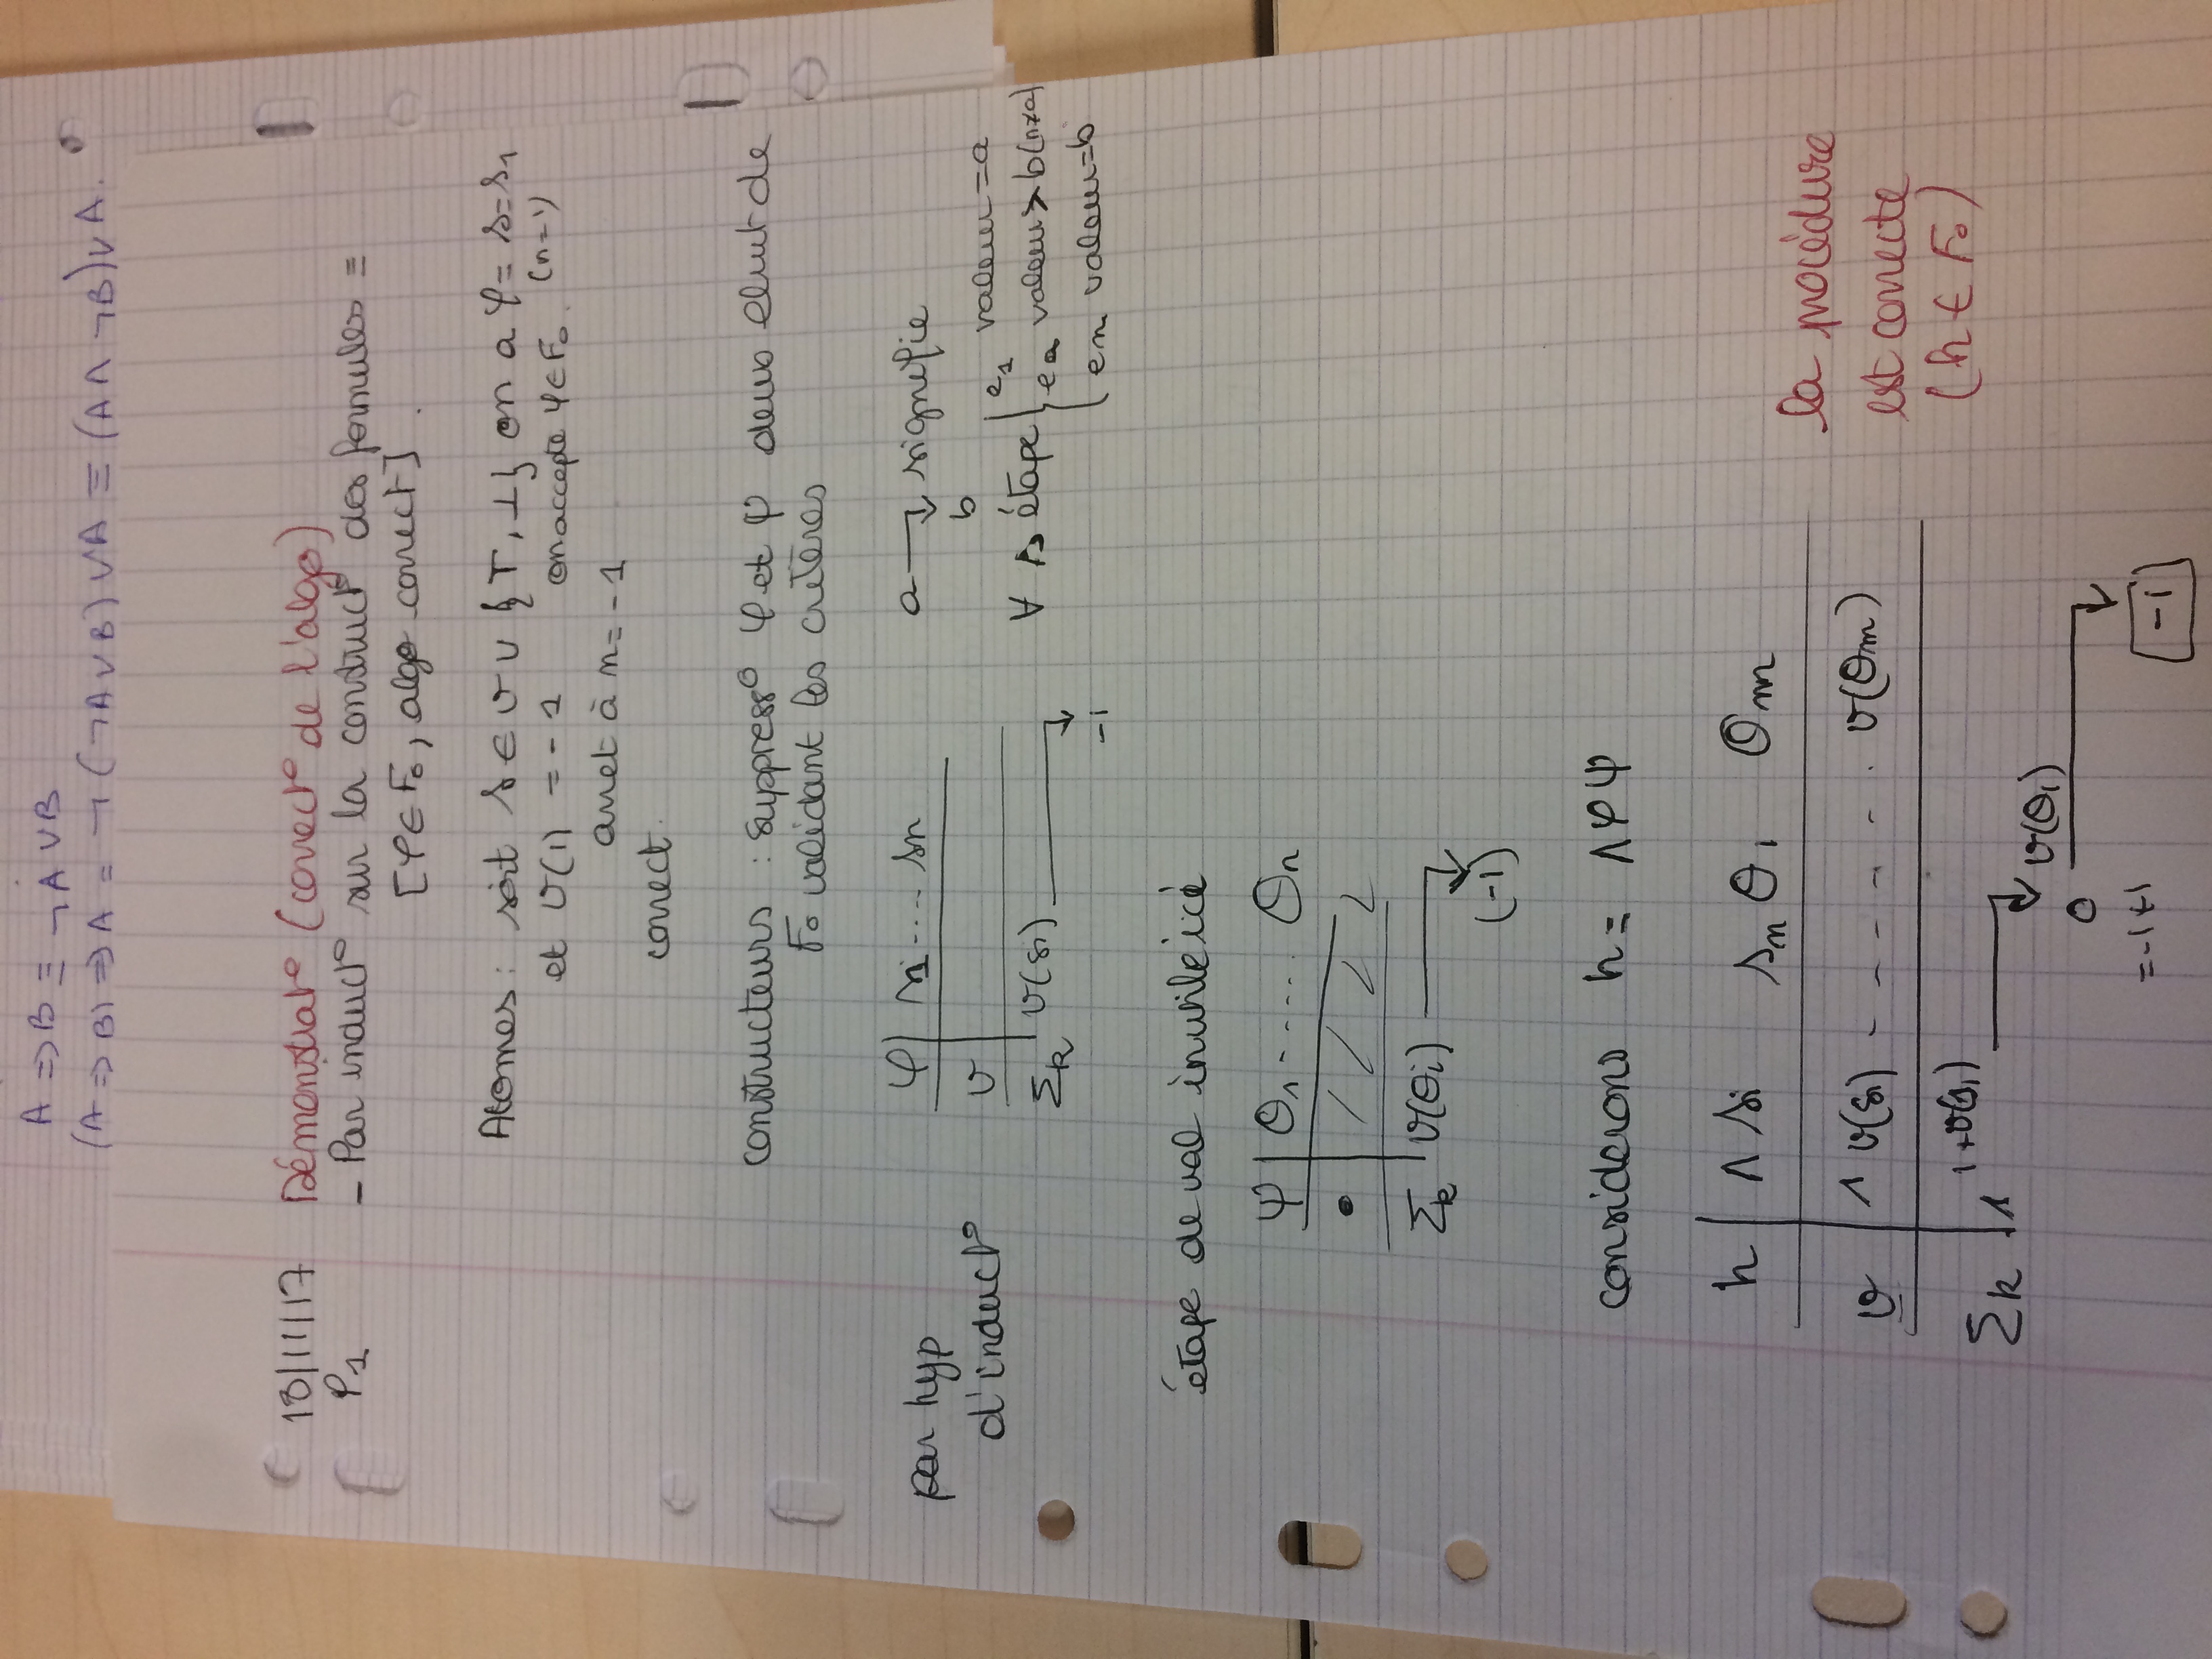 A => B ≡ ¬A ∨ B
(A => B) => A = ¬(¬A ∨ B) ∨ A ≡ (A ∧ ¬B) ∨ A.
18/11/17 Démonstrat° (correct° de l'algo)
P1 - Par induct° sur la construct° des formules ≡
[φ ∈ F₀, algo correct].
Atomes : soit s ∈ v ∪ {T, ⊥} on a φ = s = s₁
et v(1) = -1 on accepte φ ∈ F₀. (n=1)
arret à n = -1
correct.
constructeurs : suppress° φ et ψ deux elmt de
F₀ validant les critères
par hyp
d'induct°
φ | s₁ .... sn
v
Σk v(si)
-1
a ↴ signifie
b
∀ s étape { e₁ valeur = a
ea valeur > b (n≠a)
en valeur = b
étape de val inutile ici
ψ | θ₁ - .... θn
•
Σk v(θi)
(-1)
considerons h = ∧φψ
h | ∧ si sn θ₁ θm
v | 1 v(si) - - - - - - v(θm)
Σk | 1 1+v(s₁)
v(θ₁)
0
= -1+1
-1
la procédure
est correcte
(h ∈ F₀)